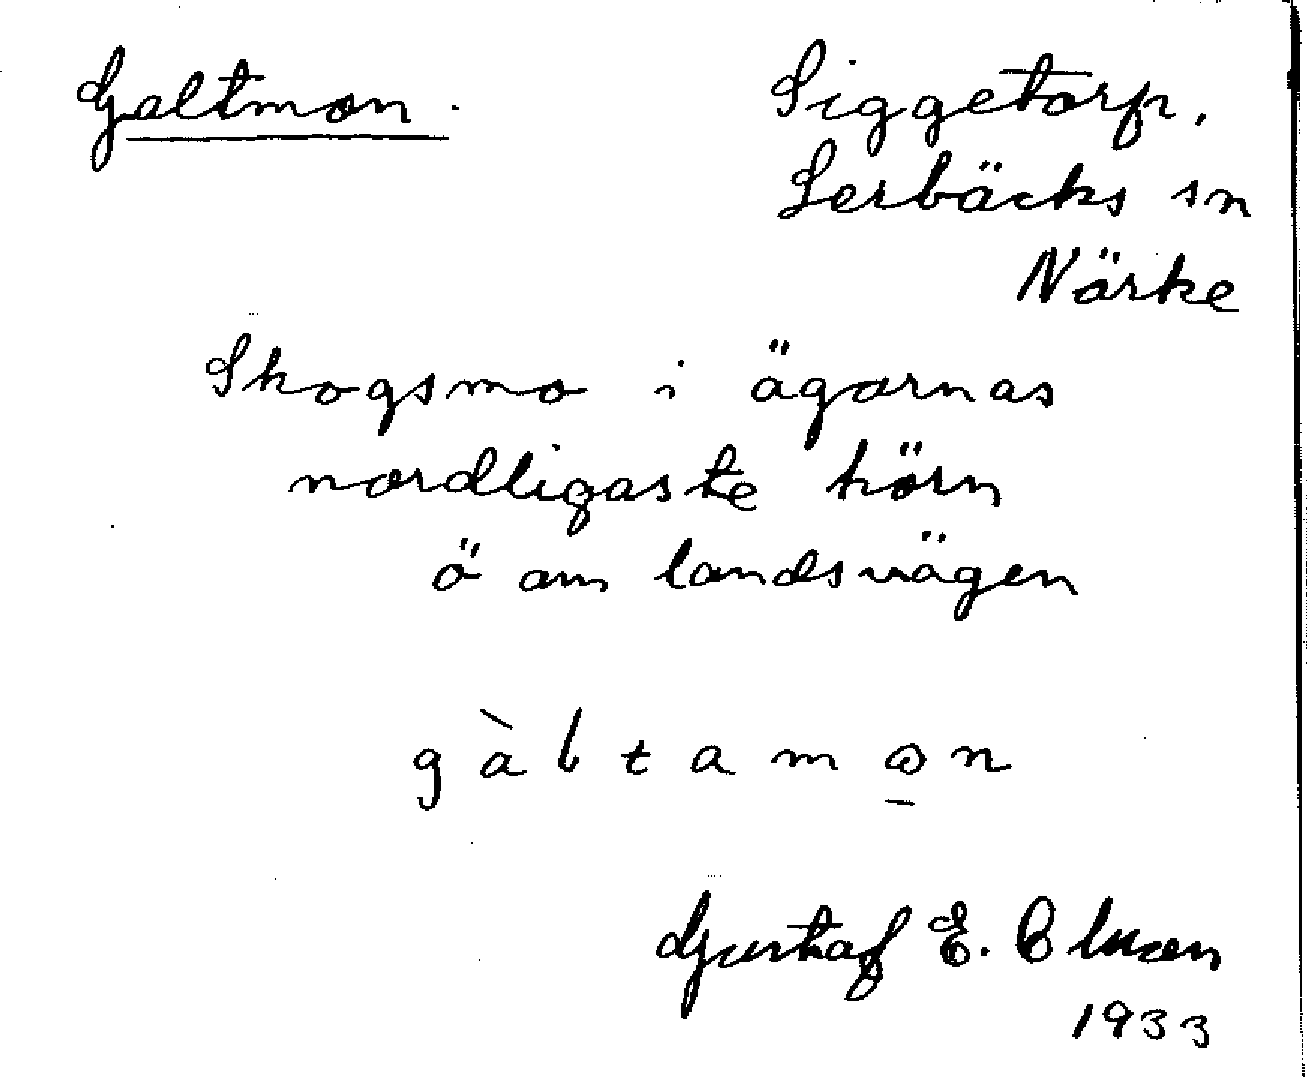 Galtmon.
Siggetorp,
Lerbäcks sn
Närke
Skogsmo i ägornas
nordligaste hörn
ö om landsvägen
gàltamon
Gustaf E. Olsson
1933